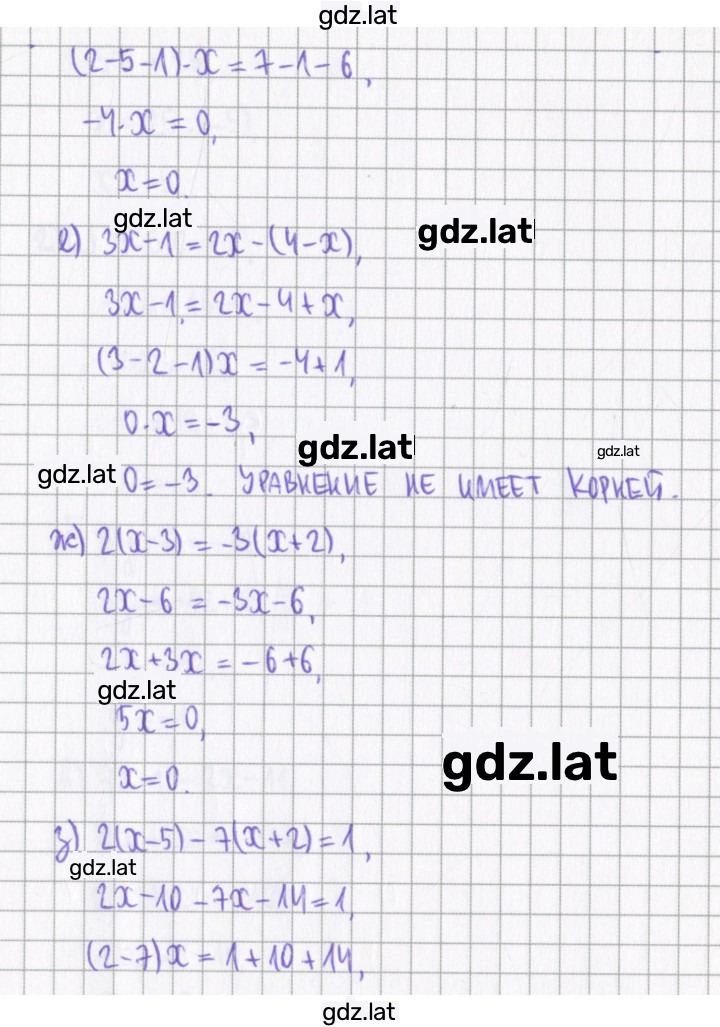 gdz.lat
(2-5-1)·x = 7-1-6,
-4·x = 0,
x=0.
gdz.lat
gdz.lat
е) 3x-1 = 2x-(4-x),
3x-1 = 2x-4+x,
(3-2-1)x = -4+1,
0·x = -3,
gdz.lat
gdz.lat
gdz.lat
0 = -3. УРАВНЕНИЕ НЕ ИМЕЕТ КОРНЕЙ.
ж) 2(x-3) = -3(x+2),
2x-6 = -3x-6,
2x+3x = -6+6,
gdz.lat
5x=0,
gdz.lat
x=0.
з) 2(x-5)-7(x+2)=1,
gdz.lat
2x-10-7x-14=1,
(2-7)x = 1+10+14,
gdz.lat